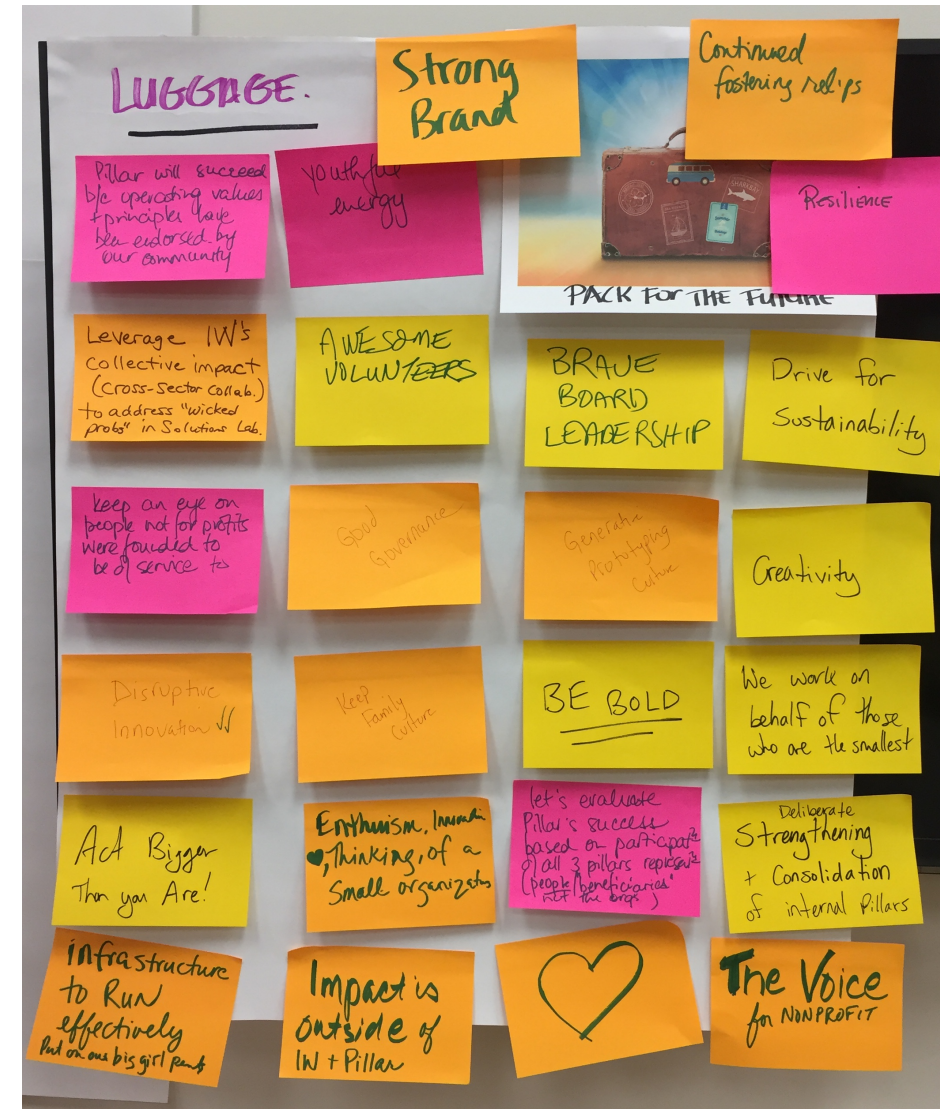 LUGGAGE.
Strong
Brand
Continued
fostering relps
Pillar will succeed
b/c operating values
+ principles have
been endorsed by
our community
youthful
energy
SHARKS!
Resilience
PACK FOR THE FUTURE
Leverage IW's
collective impact
(cross-sector collab.)
to address "wicked
probs" in Solutions Lab.
AWESOME
VOLUNTEERS
BRAVE
BOARD
LEADERSHIP
Drive for
Sustainability
keep an eye on
people not for profits
were founded to
be of service to
Good
Governance
Generative
Prototyping
Culture
Creativity
Disruptive
Innovation
Keep
Family
Culture
BE BOLD
We work on
behalf of those
who are the smallest
Act Bigger
Than you Are!
Thinking, of a
Small
let's evaluate
Pillar's success
based on
of all 3 pillars
(people/"beneficiaries"
not the orgs)
Deliberate
Strengthening
+ Consolidation
of internal Pillars
infrastructure
to RUN
effectively
Put on our big girl pants
Impact is
outside of
IW + Pillar
The Voice
for NONPROFIT